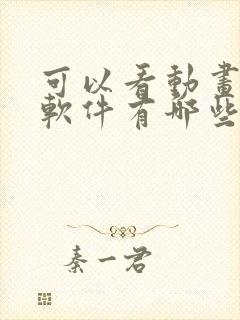 可以看動畫
軟件有哪些
秦一君